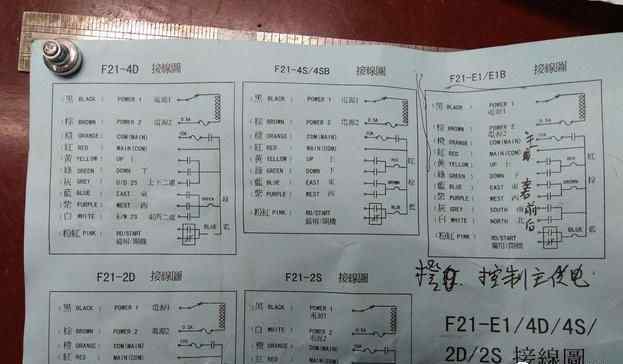 F21-4D 接線圖
(黑 BLACK ) POWER 1 電源1
(棕 BROWN ) POWER 2 電源2 0.5A
(橙 ORANGE) COM(MAIN) 10A
(紅 RED ) MAIN(COM)
(黃 YELLOW) UP 上
(綠 GREEN ) DOWN 下
(灰 GREY ) U/D 2S 上下二速
(藍 BLUE ) EAST 東
(紫 PURPLE) WEST 西 GREEN 綠
(白 WHITE ) E/W 2S
(粉紅 PINK ) RD/START BLUE 藍
備用/開機
F21-4S/4SB 接線圖
(黑 BLACK ) POWER 1 電源1
(棕 BROWN ) POWER 2 電源2 0.5A
(橙 ORANGE) COM(MAIN) 10A
(紅 RED ) MAIN(COM)
(黃 YELLOW) UP 上 RED 紅
(綠 GREEN ) DOWN 下
(藍 BLUE ) EAST 東 棕
(紫 PURPLE) WEST 西
(粉紅 PINK ) RD/START BLUE 藍
備用/開機
F21-E1/E1B 接線圖
(黑 BLACK ) POWER 1
電源1
(棕 BROWN ) POWER 2 0.5A
電源2
(橙 ORANGE) COM(MAIN) 10A
(紅 RED ) MAIN(COM) 紅
(黃 YELLOW) UP 上
(綠 GREEN ) DOWN 下
(藍 BLUE ) EAST 東 棕
(紫 PURPLE) WEST 西
(灰 GREY ) SOUTH 南
(白 WHITE ) NORTH 北 藍
(粉紅 PINK ) RD/START
備用/開機
前后
控制主供电
F21-2D 接線圖
(黑 BLACK ) POWER 1 電源1
(棕 BROWN ) POWER 2 電源2 0.5A
(橙 ORANGE) COM(MAIN)
(紅 RED ) MAIN(COM)
F21-2S 接線圖
(黑 BLACK ) POWER 1
電源1
(白 WHITE ) POWER 2 0.5A
電源2
(橙 ORANGE) COM(MAIN) 10A
(紅 RED ) MAIN(COM)
F21-E1/4D/4S/
2D/2S 接線圖